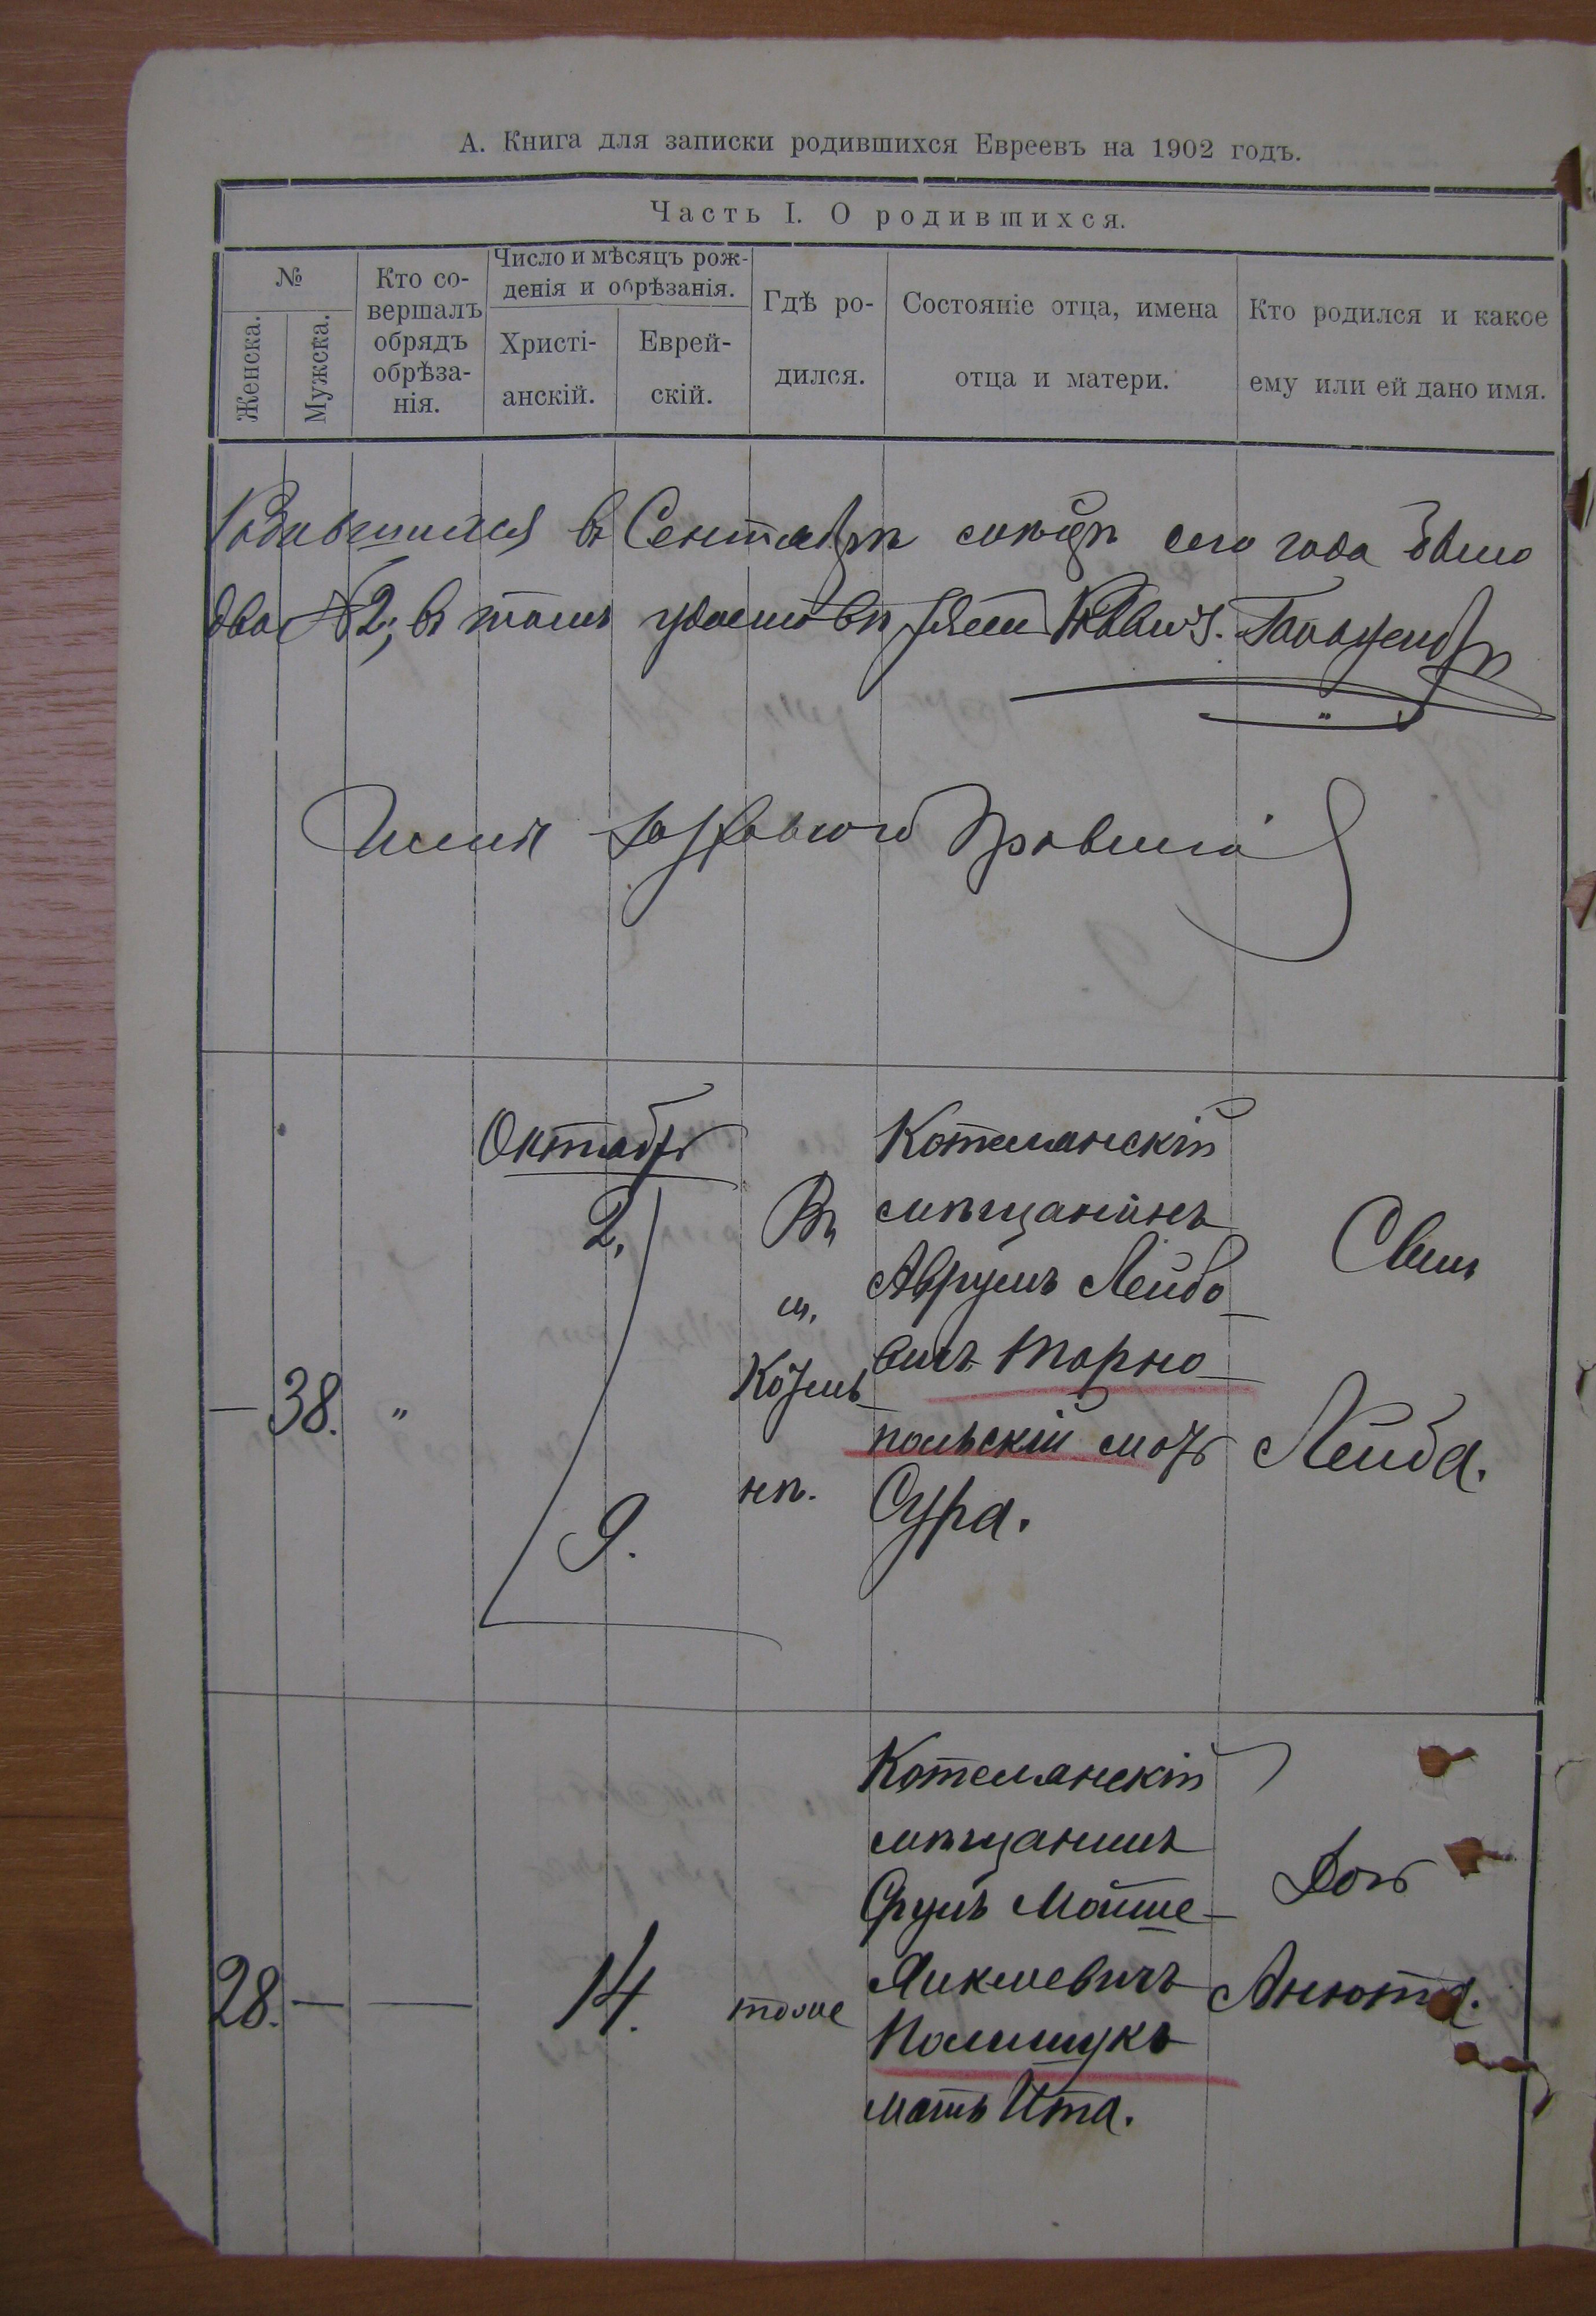 А. Книга для записки родившихся Евреевъ на 1902 годъ.
Часть I. О родившихся.
№
Женска.
Мужска.
Кто со-
вершалъ
обрядъ
обрѣза-
нія.
Число и мѣсяцъ рож-
денія и обрѣзанія.
Христі-
анскій.
Еврей-
скій.
Гдѣ ро-
дился.
Состояніе отца, имена
отца и матери.
Кто родился и какое
ему или ей дано имя.
Родившихся въ Сентябрѣ сего года было
два №2, въ томъ
Октябрь
38.
"
2.
9.
Въ
м.
Козинѣ
нѣ.
Котелянскій
мѣщанинъ
Аврумъ Лейбо-
вичъ Торно-
польскій мать
Сура.
Сынъ
Лейба.
28.
—
—
14.
тоже
Котелянскій
мѣщанинъ
Срулъ Мойше-
Янкелевичъ
Полищукъ
мать Ита.
Дочь
Анюта.